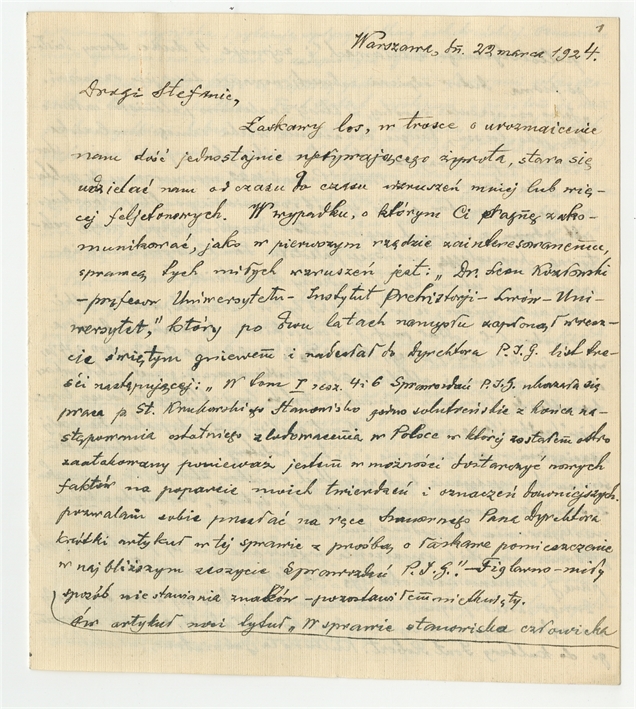 1
Warszawa, dn. 22 marca 1924.
Drogi Stefanie,
Łaskawy los, w trosce o urozmaicenie
nam dość jednostajnie upływającego żywota, stara się
udzielać nam od czasu do czasu wzruszeń mniej lub wię-
cej feljetonowych. W wypadku, o którym Ci pragnę zako-
munikować, jako w pierwszym rzędzie zainteresowanemu,
sprawcą tych miłych wzruszeń jest: „Dr. Leon Kozłowski
- profesor Uniwersytetu - Instytut Prehistorji - Lwów - Uni-
wersytet," który po dwu latach namysłu zapłonął wresz-
cie świętym gniewem i nadesłał do Dyrektora P.I.G. list tre-
ści następującej: „W tom I zesz. 4 i 6 Sprawozdań P.I.G. ukazała się
praca p St. Krukowskiego Stanowisko solutrejskie z końca na-
stępowania ostatniego zlodowacenia w Polsce w której zostałem ostro
zaatakowany ponieważ jestem w możności dostarczyć nowych
faktów na poparcie moich twierdzeń i oznaczeń dawniejszych.
pozwalam sobie przesłać na ręce Szanownego Pana Dyrektora
krótki artykuł w tej sprawie z prośbą o łaskawe pomieszczenie
w najbliższym zeszycie Sprawozdań P.I.G." - Figlarno-miły
sposób niestawiania znaków - pozostawiłem nietknięty.
Ów artykuł nosi tytuł „W sprawie stanowiska człowieka